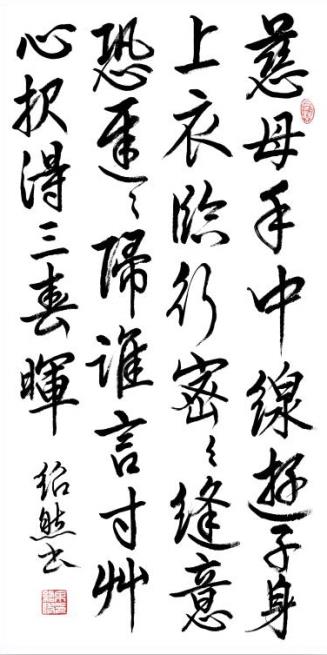 慈母手中線遊子身
上衣臨行密々縫意
恐遲々歸誰言寸艸
心报得三春暉
紹然书